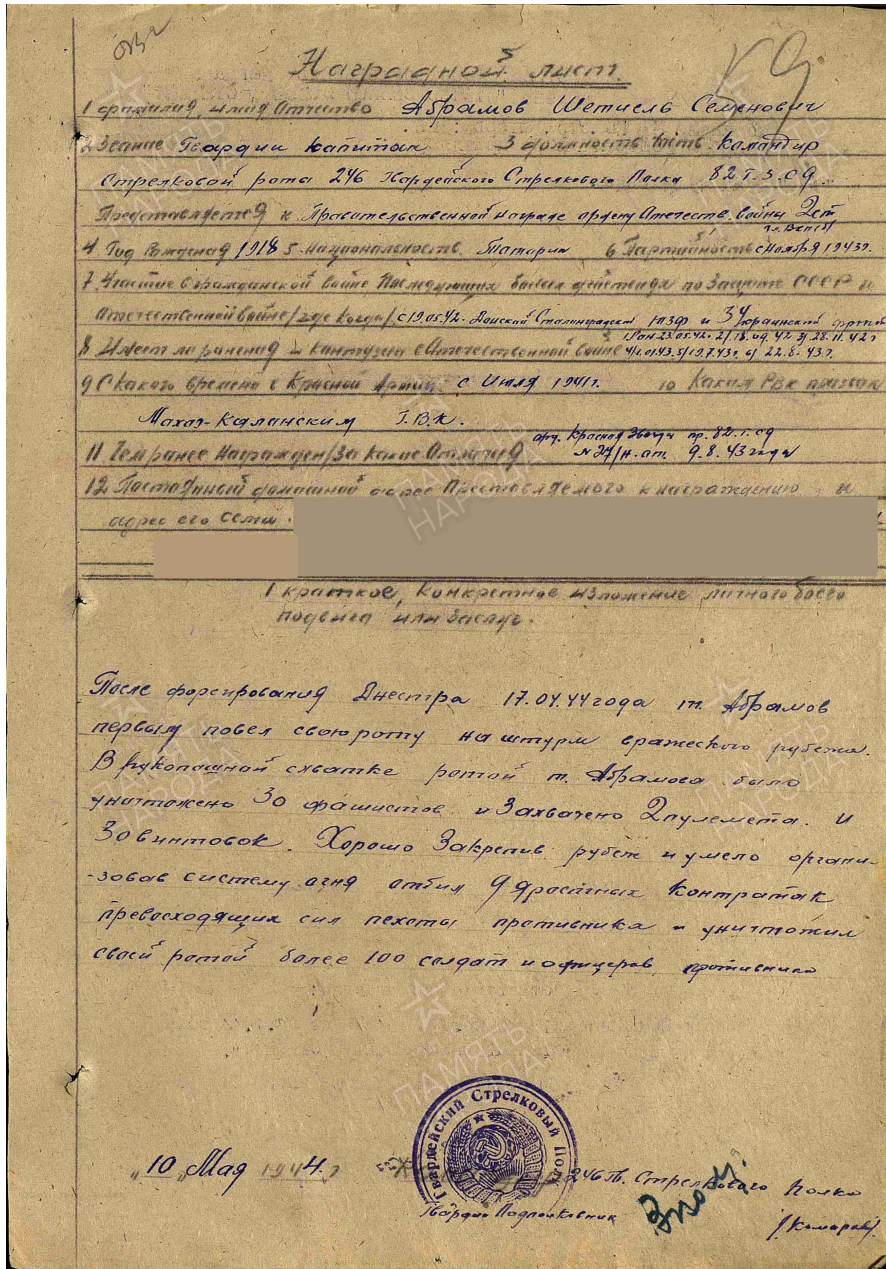 Наградной лист.
1 фамилия, имя Отчество Абрамов Шетиель Семенович
2 Звание Гвардии капитан 3 должность часть Командир
Стрелковой рота 246 Гвардейского Стрелкового Полка 82 Г.З.СД
Представляется к Правительственной награде ордену Отечеств. войны 2 ст
4 Год Рождения 1918 5. Национальность Татарин 6 Партийность с Ноября 1943г.
7 Участие в гражданской войне Последующих боевых действиях по Защите СССР и
Отечественной войне /где когда/ с 19.05.42. Донской Сталинградский ЮЗФ и 3 Украинский фронт
8 Имеет ли ранения и контузии в Отечественной войне 1/Ран 23.05.42. 2/18.09.42 3/28.11.42г
4/1.01.43. 5/19.7.43г. 6/ 22.8.43г.
9 С какого времени в Красной Армии с Июля 1941г. 10 Каким РВК призван
Махач-Калинским Г.В.К.
11 Чем ранее Награжден/За какие Отличия орд. Красная Звезда пр. 82.г.сд
№ 27/н. от 9.8.43 года
12 Постоянный домашний адрес Представляемого к награждению и
адрес его семьи.
1 краткое, конкретное изложение личного боего
подвига или заслуг.
После форсирования Днестра 17.04.44 года т. Абрамов
первым повел свою роту на штурм вражеского рубежа.
В рукопашной схватке ротой т. Абрамова было
уничтожено 30 фашистов и Захвачено 2 пулемета. и
30 винтовок. Хорошо Закрепив рубеж и умело органи-
-зовав систему огня отбил 9 яростных Контратак
превосходящих сил пехоты противника и уничтожил
своей ротой более 100 солдат и офицеров противника
Гвардейский Стрелковый Полк
"10" Мая 1944.г
246 Гв. Стрелкового полка
Гвардии Подполковник /Комаров/.
ПАМЯТЬ НАРОДА